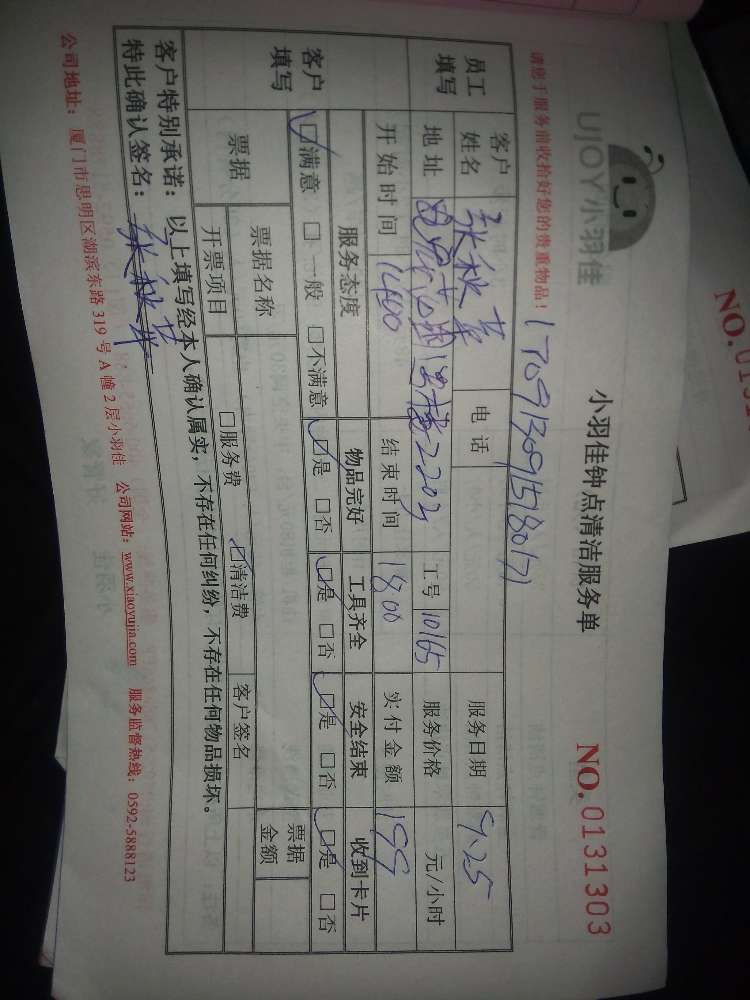 NO.
UJOY小羽佳
小羽佳钟点清洁服务单
NO. 0131303
请您于服务前收拾好您的贵重物品!
1709130915180171
员工填写
客户姓名
电话
服务日期 9.25
地址 2203
工号 10165
服务价格 元/小时
开始时间 1400
结束时间 1800
实付金额 199
客户填写
服务态度 物品完好 工具齐全 安全结束 收到卡片
☑满意 □一般 □不满意 ☑是 □否 ☑是 □否 ☑是 □否 ☑是 □否
票据
票据名称
票据金额
开票项目 □服务费 ☑清洁费 客户签名
客户特别承诺:以上填写经本人确认属实,不存在任何纠纷,不存在任何物品损坏。
特此确认签名:
公司地址:厦门市思明区湖滨东路319号A幢2层小羽佳 公司网站:www.xiaoyujia.com 服务监督热线:0592-5888123